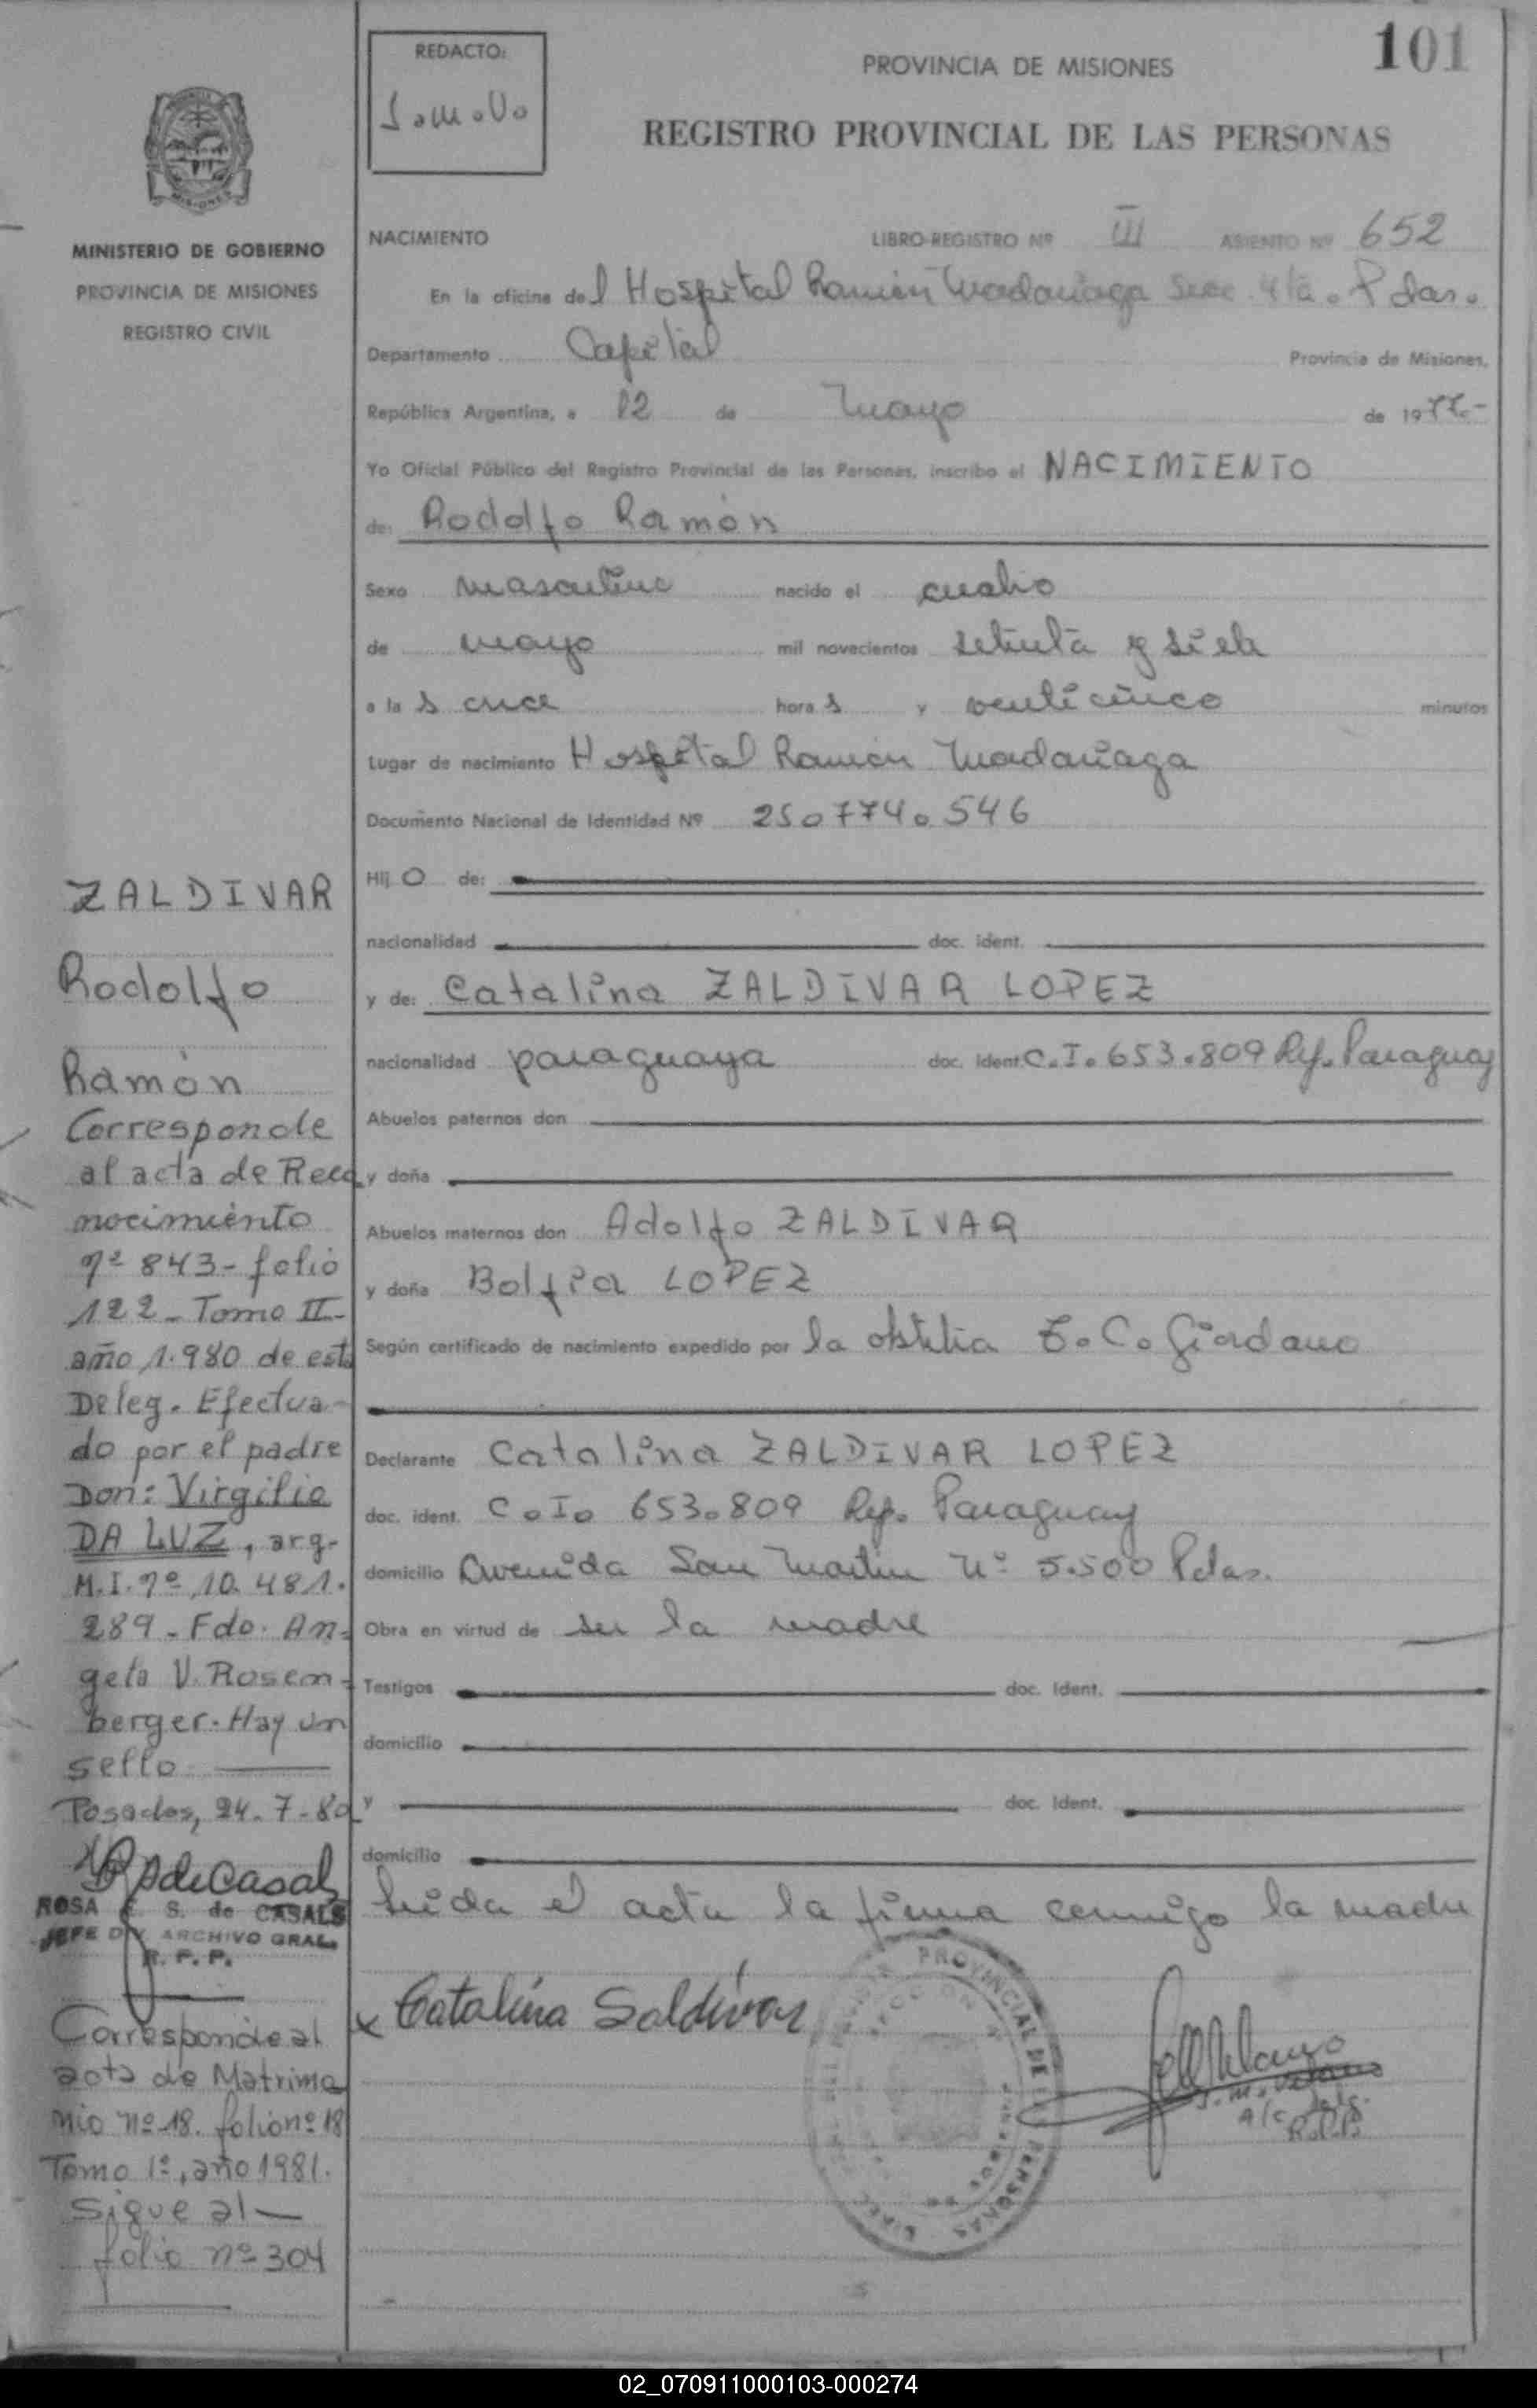 101
REDACTO:
J.M.V.
PROVINCIA DE MISIONES
REGISTRO PROVINCIAL DE LAS PERSONAS
MISIONES
MINISTERIO DE GOBIERNO
PROVINCIA DE MISIONES
REGISTRO CIVIL
NACIMIENTO LIBRO-REGISTRO Nº III ASIENTO Nº 652
En la oficina del Hospital Ramón Madariaga Secc. 4ta. Pdas.
Departamento Capital Provincia de Misiones,
República Argentina, a 12 de Mayo de 1977.-
Yo Oficial Público del Registro Provincial de las Personas, inscribo el NACIMIENTO
de: Rodolfo Ramón
Sexo masculino nacido el cuatro
de mayo mil novecientos setenta y siete
a las once horas y venticinco minutos
Lugar de nacimiento Hospital Ramón Madariaga
Documento Nacional de Identidad Nº 25.774.546
Hijo de:
nacionalidad doc. ident.
y de: Catalina ZALDIVAR LOPEZ
nacionalidad paraguaya doc. ident. C.I. 653.809 Rep. Paraguay
Abuelos paternos don
y doña
Abuelos maternos don Adolfo ZALDIVAR
y doña Bolfia LOPEZ
Según certificado de nacimiento expedido por la obstetra E. C. Giordano
Declarante Catalina ZALDIVAR LOPEZ
doc. ident. C.I. 653.809 Rep. Paraguay
domicilio Avenida San Martin Nº 5.500 Pdas.
Obra en virtud de ser la madre
Testigos doc. ident.
domicilio
y doc. ident.
domicilio
Leida el acta la firma conmigo la madre
x Catalina Saldívar
A/c Delg.
R.P.P.
ZALDIVAR
Rodolfo
Ramón
Corresponde
al acta de Reco
nocimiento
nº 843- folio
122- Tomo II-
año 1.980 de esta
Deleg. Efectua-
do por el padre
Don: Virgilio
DA LUZ, arg-
M.I. nº 10.481.
289- Fdo. An-
gela V. Rosem-
berger. Hay un
sello
Posadas, 24-7-80
ROSA E. S. de CASALS
JEFE DIV. ARCHIVO GRAL.
R. P. P.
Corresponde al
acta de Matrimo
nio nº 18. folio nº 18
Tomo 1º, año 1981.
Sigue al
folio nº 304
02_070911000103-000274